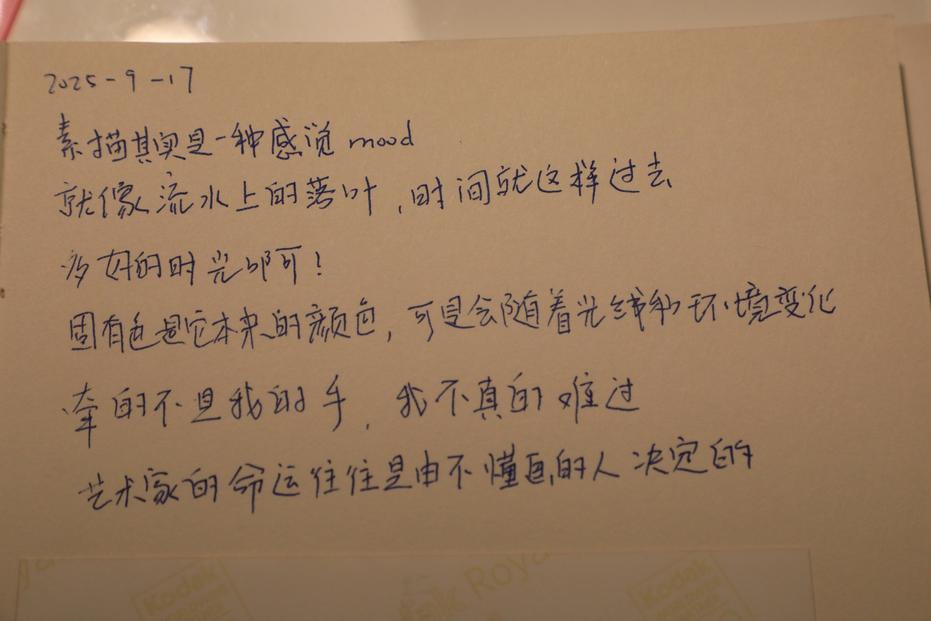 2025-9-17
素描其实是一种感觉 mood
就像流水上的落叶，时间就这样过去
多好的时光啊！
固有色是它本来的颜色，可是会随着光线和环境变化
牵的不是我的手，我不真的难过
艺术家的命运往往是由不懂画的人决定的
Kodak
Kodak Roya
Kodak